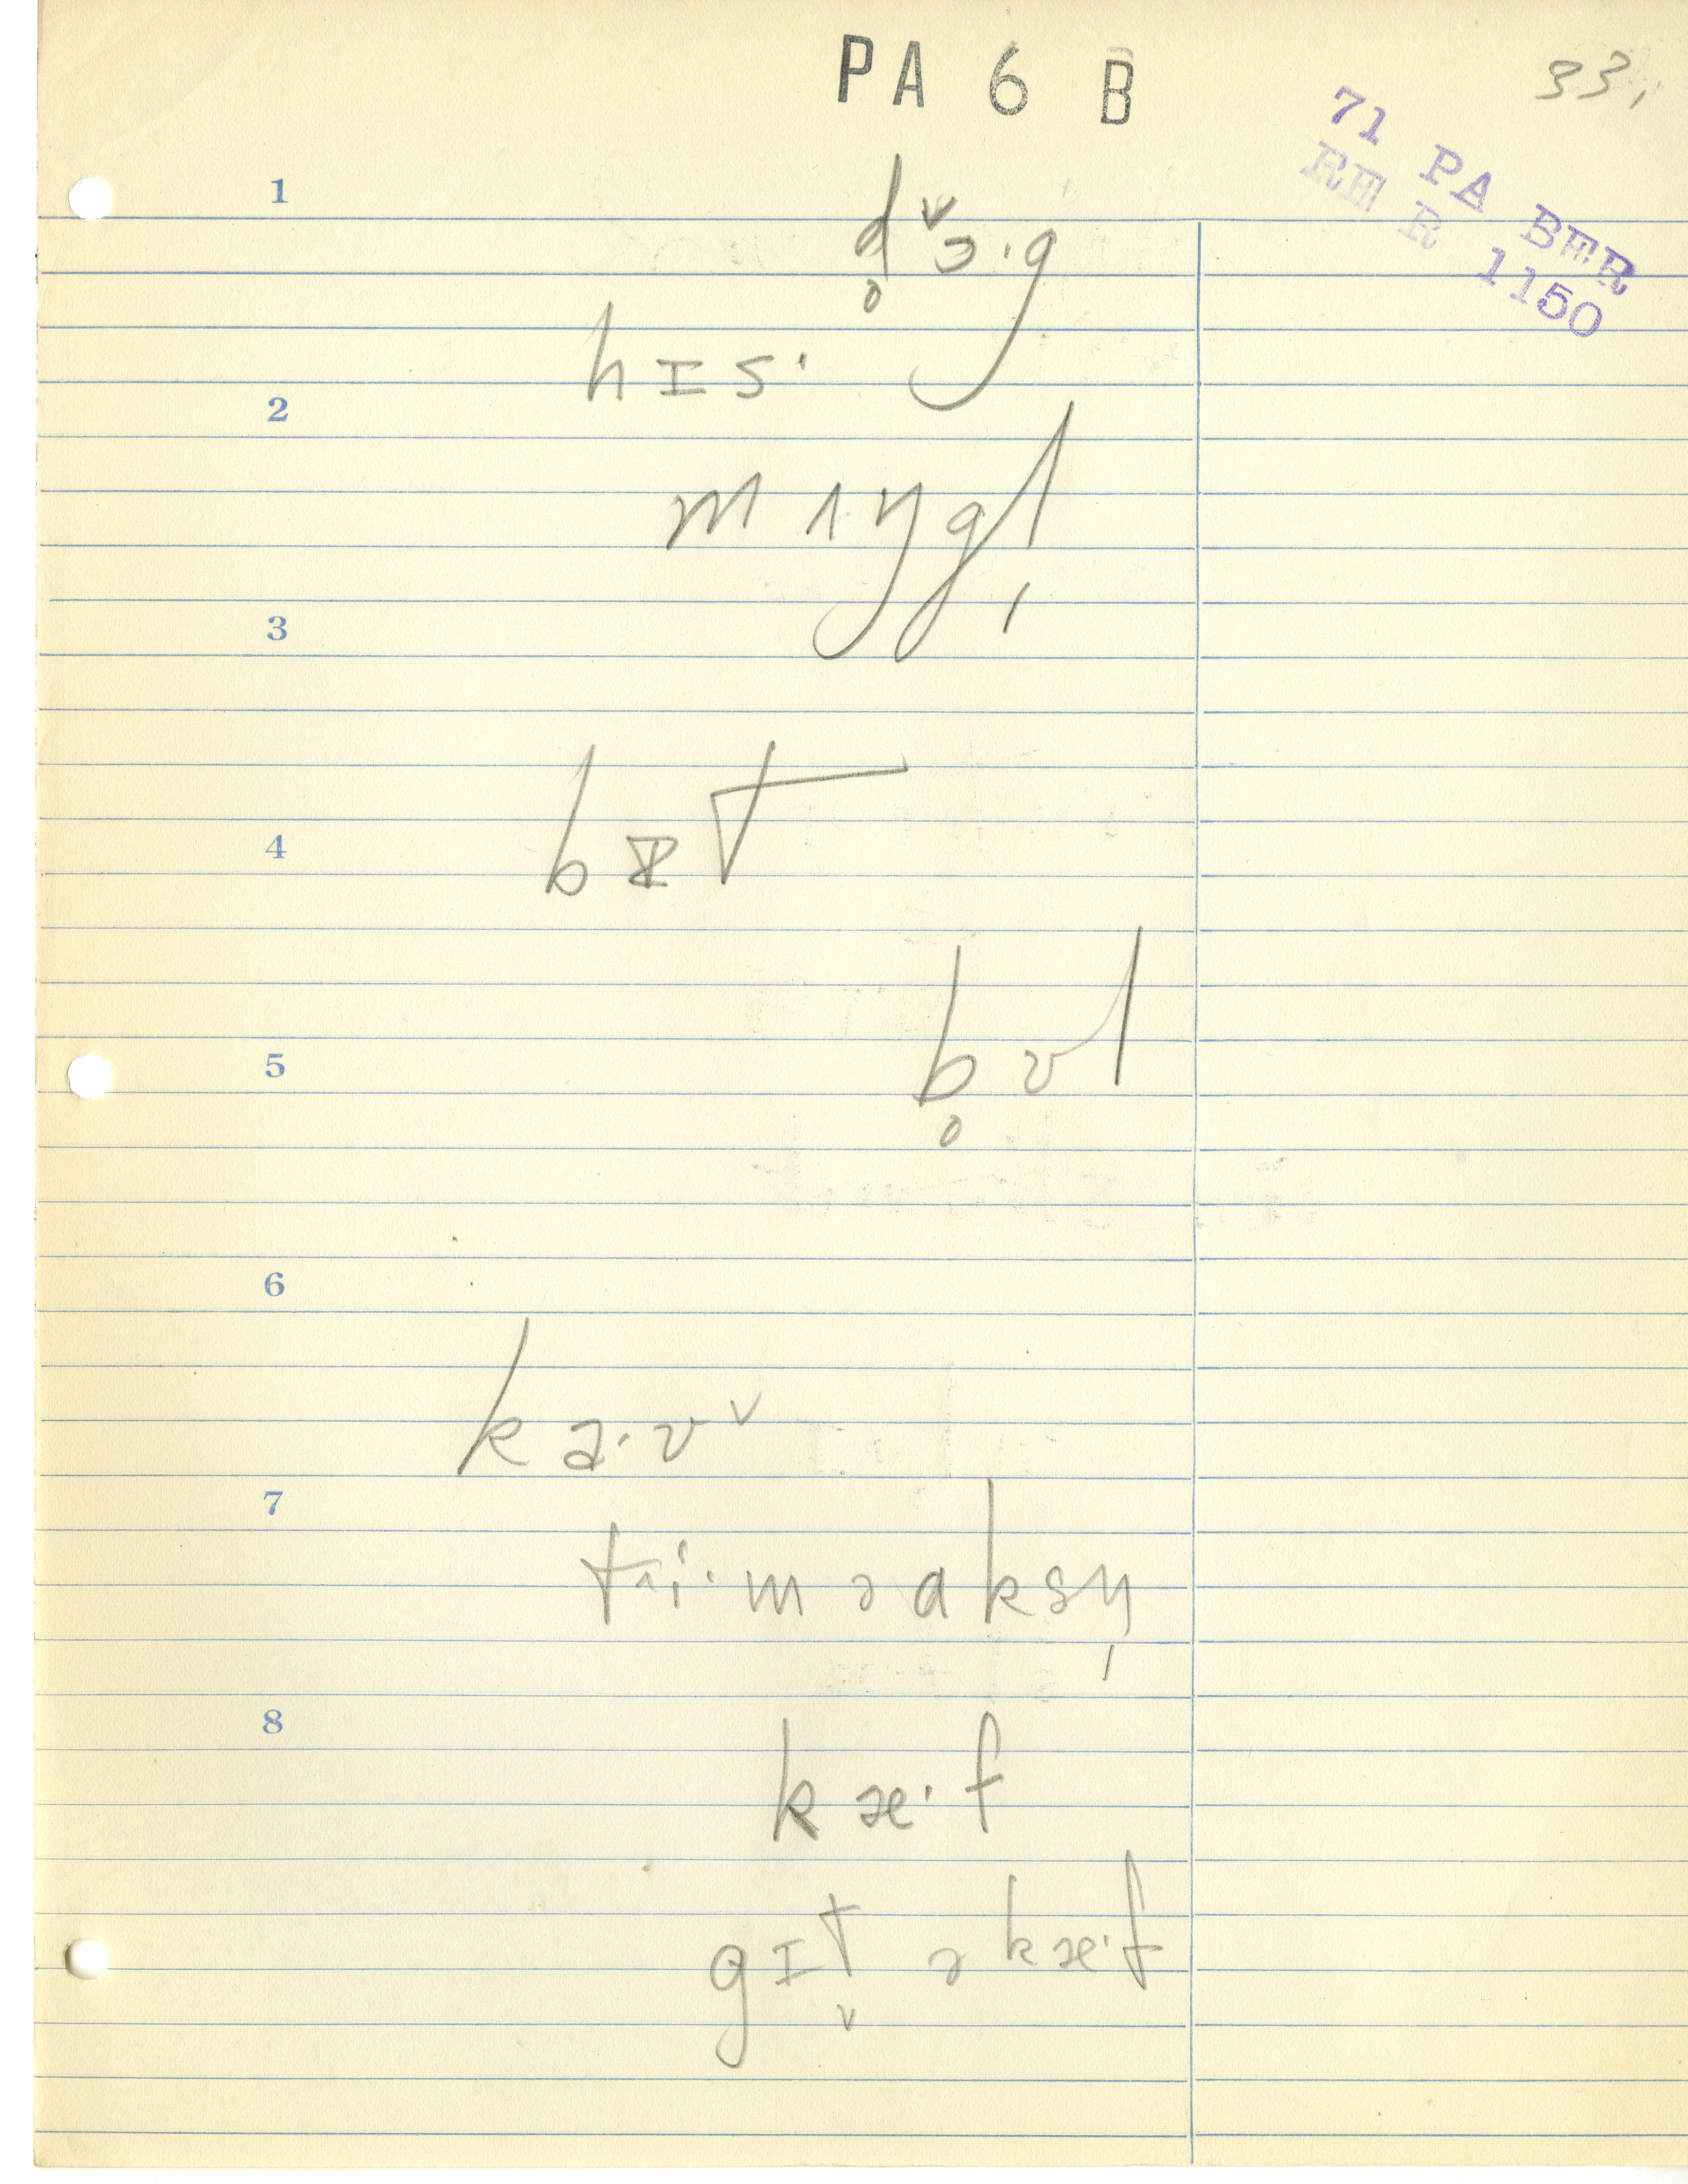 PA 6 B
33,
71 PA BER
RE R 1150
1
d̥ɔˇ·g
hɪs·
2
mʌŋgl̩
3
4
b t
5
b̥ʊl
6
ka·ʊˇ
7
tri·məaksn̩
8
kæ·f
gɪt̬ ə kæ·f